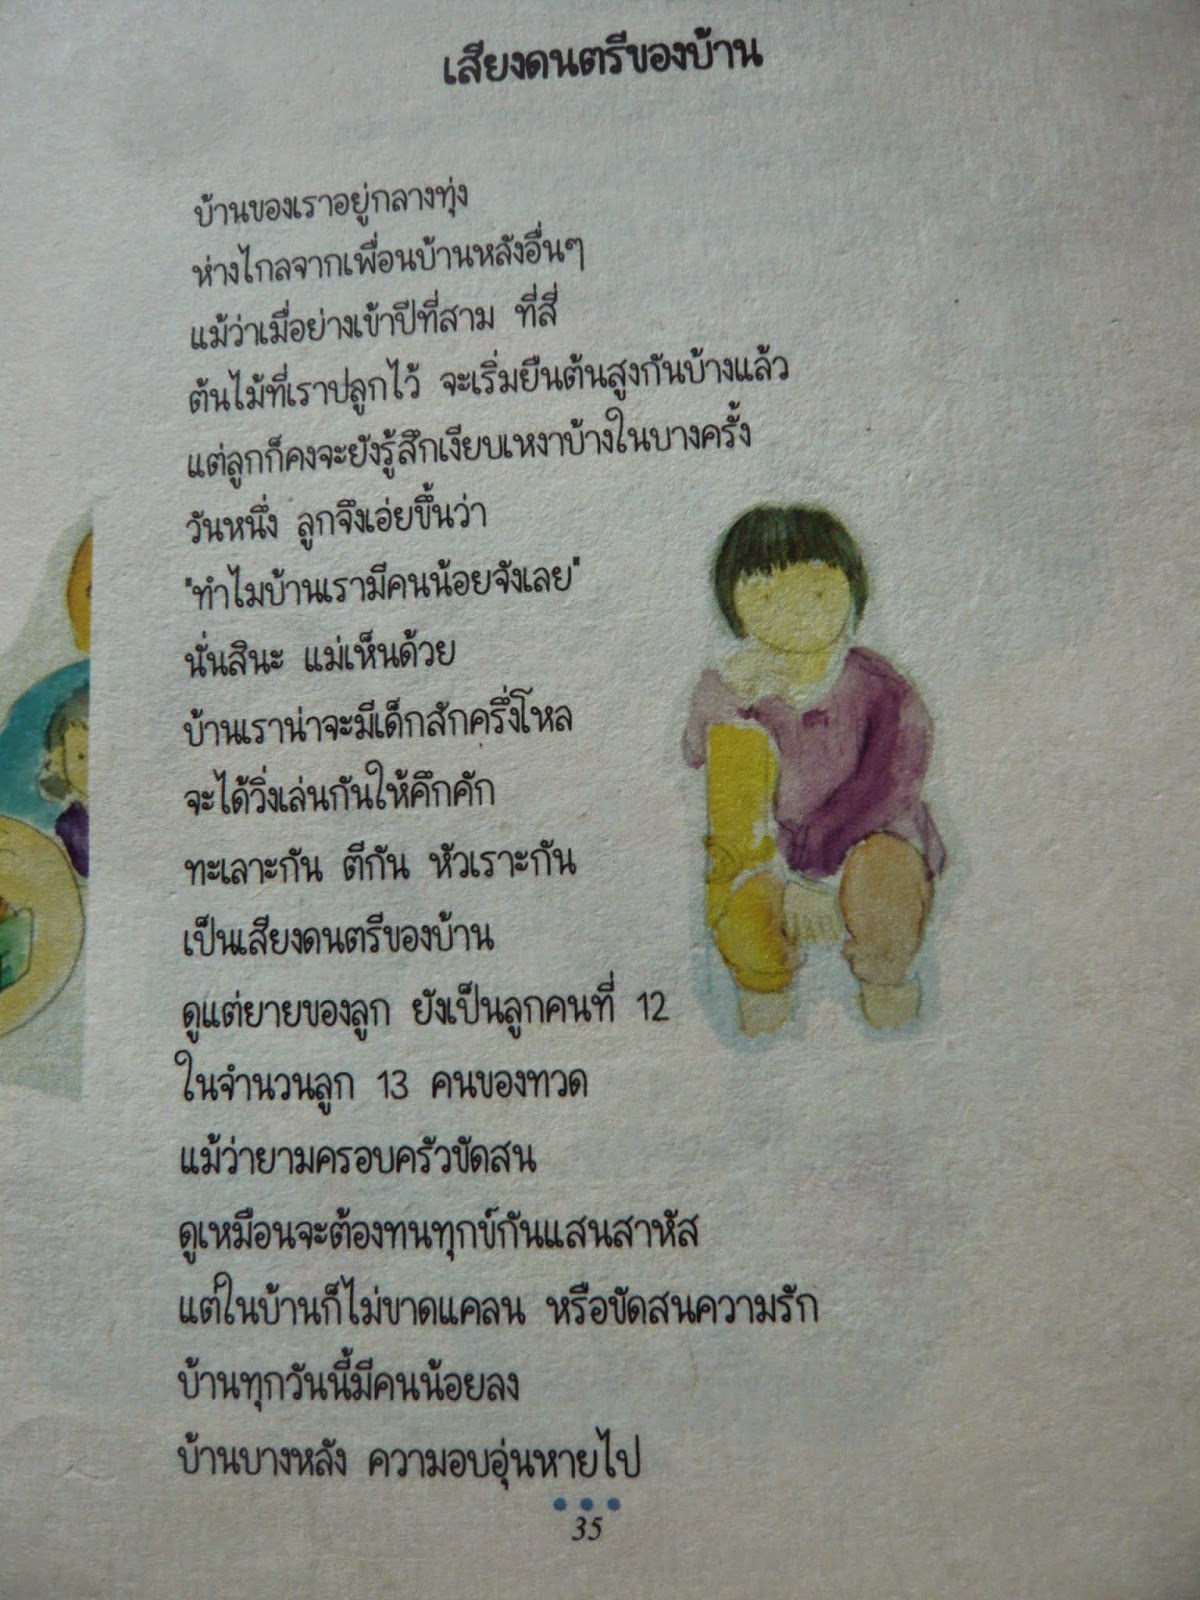 เสียงดนตรีของบ้าน
บ้านของเราอยู่กลางทุ่ง
ห่างไกลจากเพื่อนบ้านหลังอื่นๆ
แม้ว่าเมื่อย่างเข้าปีที่สาม ที่สี่
ต้นไม้ที่เราปลูกไว้ จะเริ่มยืนต้นสูงกันบ้างแล้ว
แต่ลูกก็คงจะยังรู้สึกเงียบเหงาบ้างในบางครั้ง
วันหนึ่ง ลูกจึงเอ่ยขึ้นว่า
"ทำไมบ้านเรามีคนน้อยจังเลย"
นั่นสินะ แม่เห็นด้วย
บ้านเราน่าจะมีเด็กสักครึ่งโหล
จะได้วิ่งเล่นกันให้คึกคัก
ทะเลาะกัน ตีกัน หัวเราะกัน
เป็นเสียงดนตรีของบ้าน
ดูแต่ยายของลูก ยังเป็นลูกคนที่ 12
ในจำนวนลูก 13 คนของทวด
แม้ว่ายามครอบครัวขัดสน
ดูเหมือนจะต้องทนทุกข์กันแสนสาหัส
แต่ในบ้านก็ไม่ขาดแคลน หรือขัดสนความรัก
บ้านทุกวันนี้มีคนน้อยลง
บ้านบางหลัง ความอบอุ่นหายไป
35